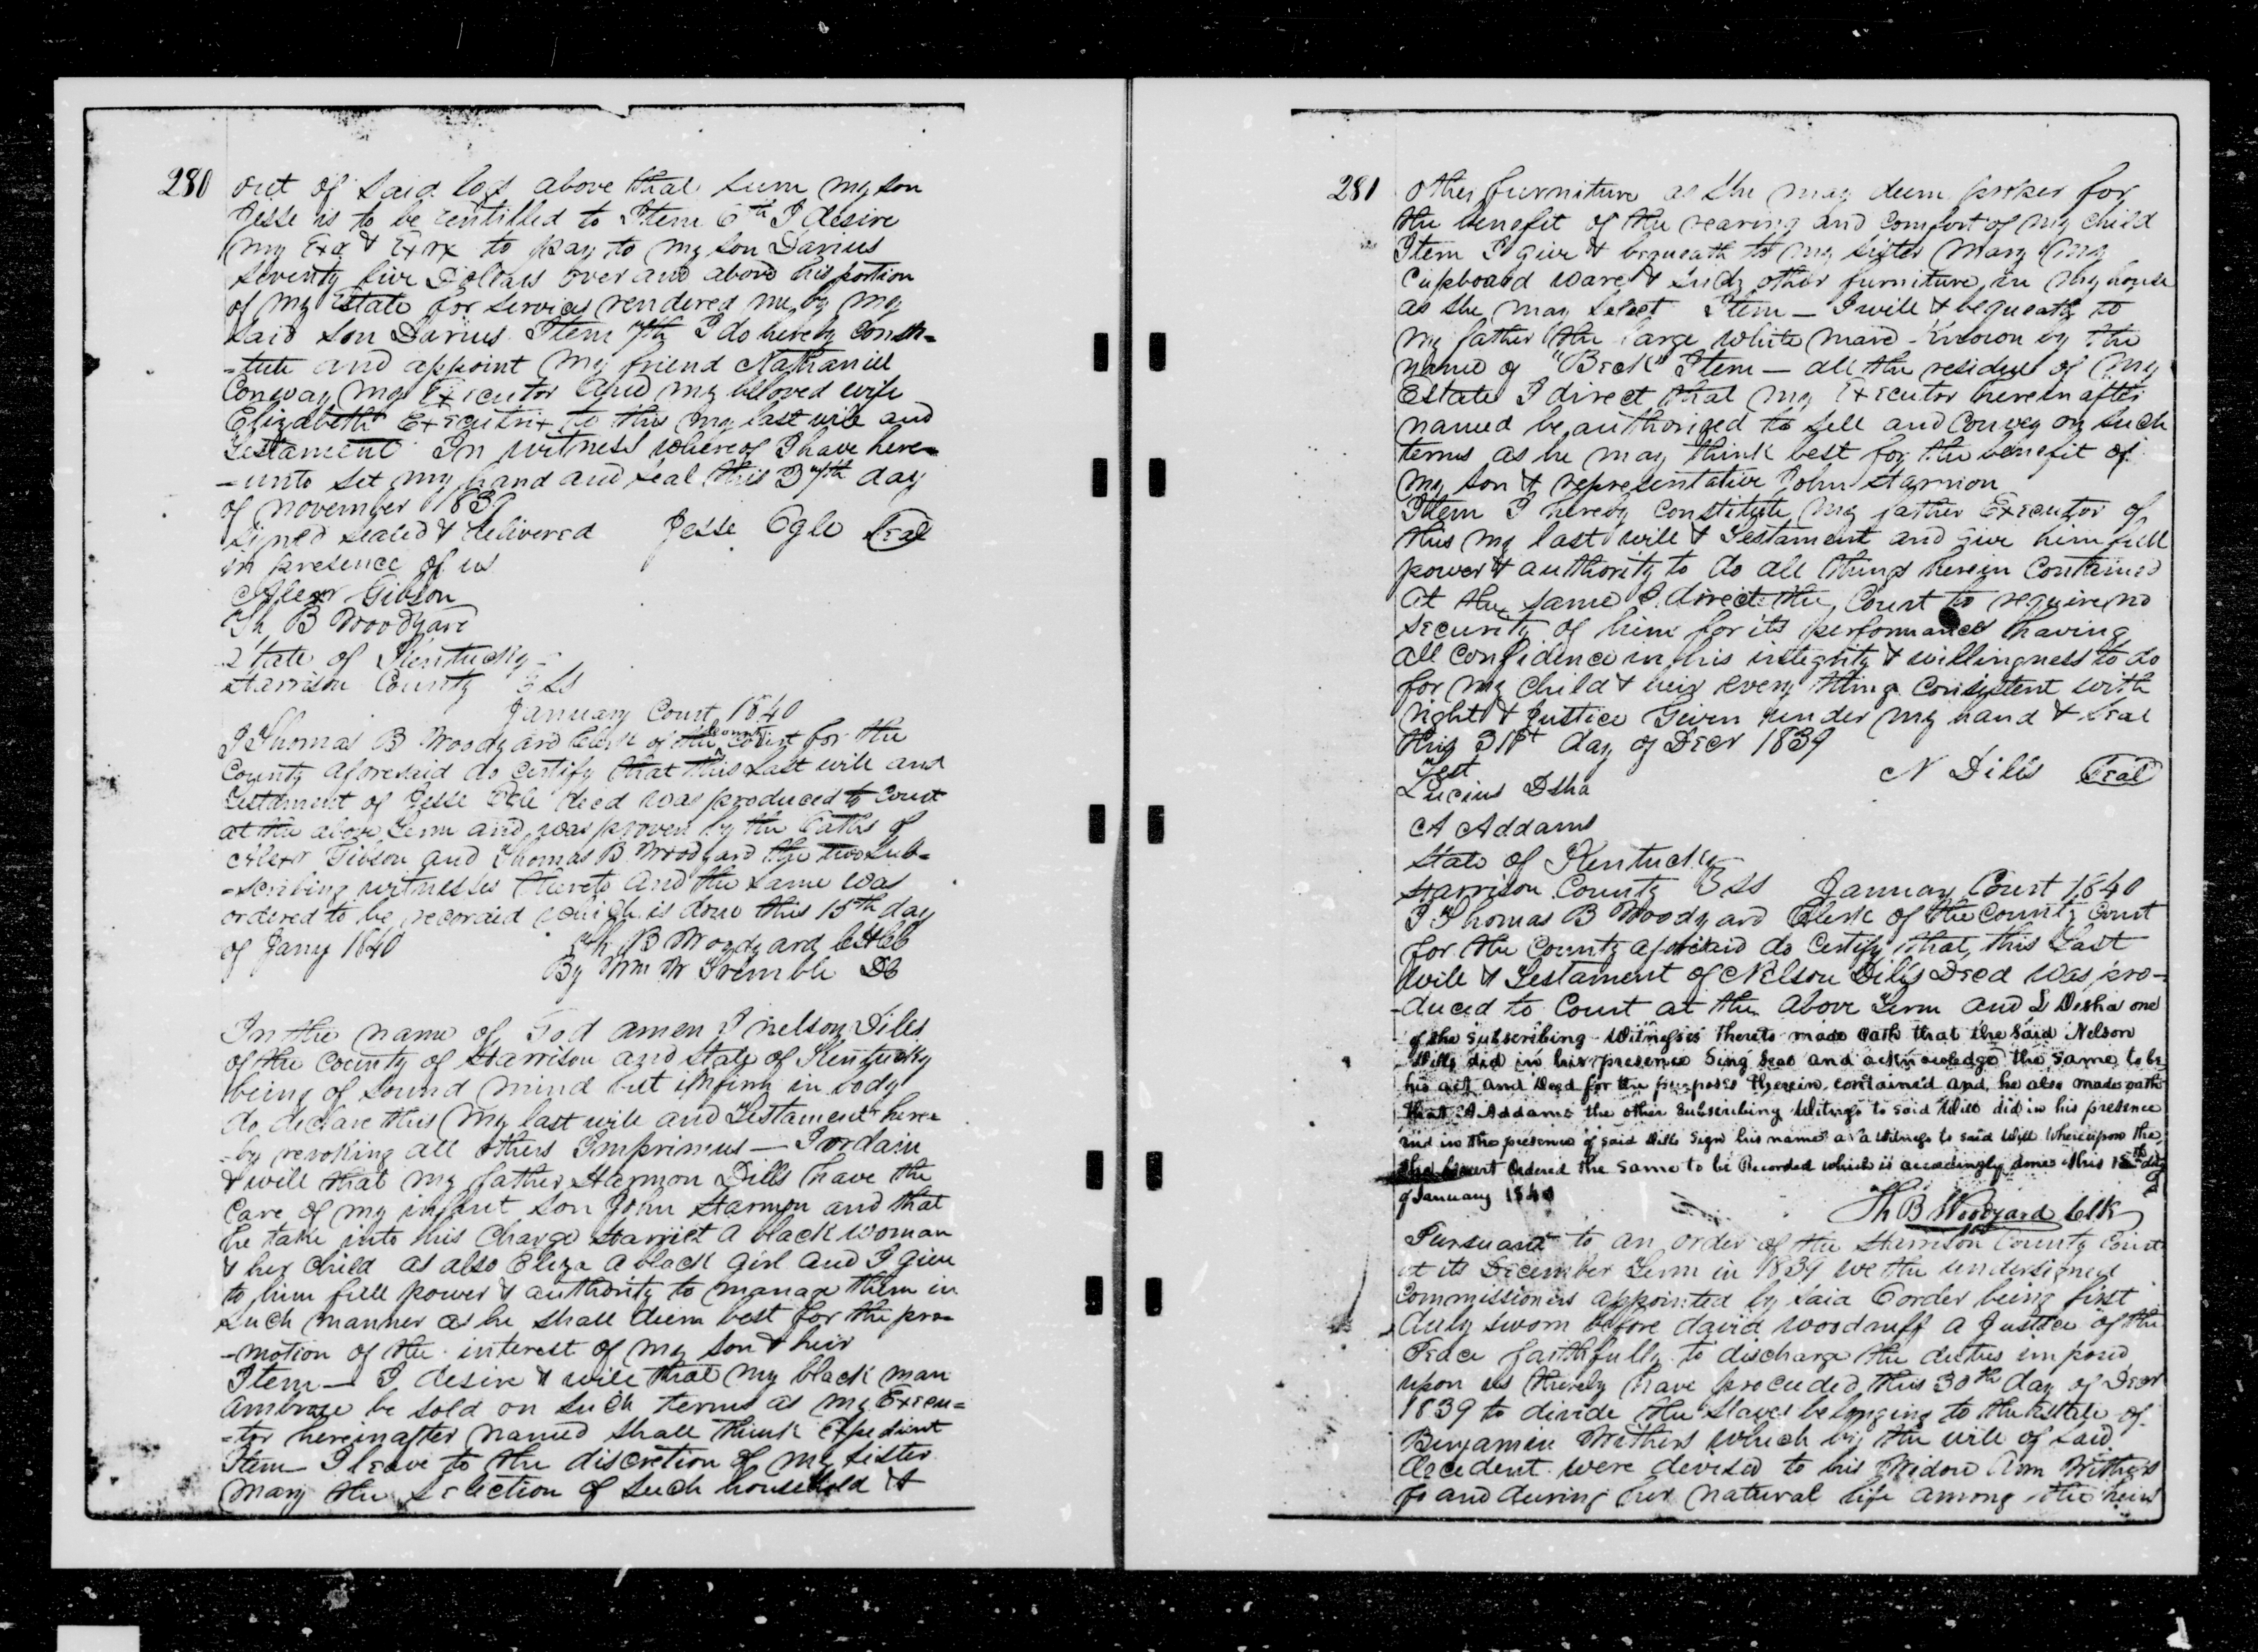 280
out of said lot above that sum my son
Jesse is to be entitled to Item 6th I desire
my Exr & Exrx to pay to my son Darius
seventy five Dollars over and above his portion
of my Estate for services rendered me by my
said son Darius. Item 7th I do hereby consti=
=tute and appoint my friend Nathaniel
Conway my Executor and my beloved wife
Elizabeth Executrix to this my last will and
Testament In witness whereof I have here=
=unto set my hand and seal this 7th day
of November 1839
signed sealed & delivered Jesse Ogle Seal
in presence of us
Alexr Gibson
Th B Woodyard
State of Kentucky
Harrison County Sct
January Court 1840
I Thomas B Woodyard Clerk of the County Court for the
County aforesaid do certify that this Last will and
Testament of Jesse Ogle decd was produced to Court
at the above Term and was proven by the Oaths of
Alexr Gibson and Thomas B Woodyard the two sub=
=scribing witnesses thereto and the same was
ordered to be recorded which is done this 15th day
of Jany 1840 Th B Woodyard
By Wm W Trimble DC
In the name of God amen I nelson Dills
of the County of Harrison and State of Kentucky
being of sound mind but infirm in body
do declare this my last will and Testament here=
=by revoking all others Imprimus — I ordain
& will that my father Harmon Dills have the
care of my infant son John Harmon and that
he take into his charge Harriet a black woman
& her child as also Eliza a black girl and I give
to him full power & authority to manage them in
such manner as he shall deem best for the pro=
=motion of the interest of my son & heir
Item — I desire & will that my black man
Ambrose be sold on such terms as my Execu=
=tor hereinafter named shall think Expedient
Item — I leave to the discretion of my sister
Mary the selection of such household &
281
other furniture as she may deem proper for
the benefit of the rearing and comfort of my child
Item I give & bequeath to my sister Mary my
Cupboard ware & such other furniture in my house
as she may select Item — I will & bequeath to
my father the large white mare known by the
name of "Beck" Item — all the residue of my
Estate I direct that my Executor hereinafter
named be authorized to sell and convey on such
terms as he may think best for the benefit of
my son & representative John Harmon
Item I hereby constitute my father Executor of
this my last will & Testament and give him full
power & authority to do all things herein contained
at the same I direct the Court to require no
security of him for its performance having
all confidence in his integrity & willingness to do
for my child & heir every thing consistent with
right & Justice Given under my hand & seal
this 31st day of Decr 1839
Test N Dills Seal
Lucius Dsha
A Addams
State of Kentucky
Harrison County Sct January Court 1840
I Thomas B Woodyard Clerk of the County Court
for the County aforesaid do certify that this Last
will & Testament of Nelson Dills Decd was pro=
=duced to Court at the above Term and L Desha one
of the subscribing Witnesses thereto made oath that the said Nelson
Dills did in his presence Sing Seal and acknowledge the same to be
his act and Deed for the purposes therein contained and he also made oath
that A Addams the other subscribing Witness to said Will did in his presence
and in the presence of said Dills Sign his name as a Witness to said Will Whereupon the
Court Ordered the same to be Recorded which is accordingly done this 15th day
of January 1840
Th B Woodyard Clk
Pursuant to an order of the Harrison County Court
at its December Term in 1839 we the undersigned
Commissioners appointed by said order being first
duly sworn before david woodruff a Justice of the
Peace faithfully to discharge the duties imposed
upon us thereby have proceeded this 30th day of Decr
1839 to divide the slaves belonging to the estate of
Benjamin Withers which by the will of said
decedent were devised to his Widow Ann Withers
for and during her natural life among the heirs